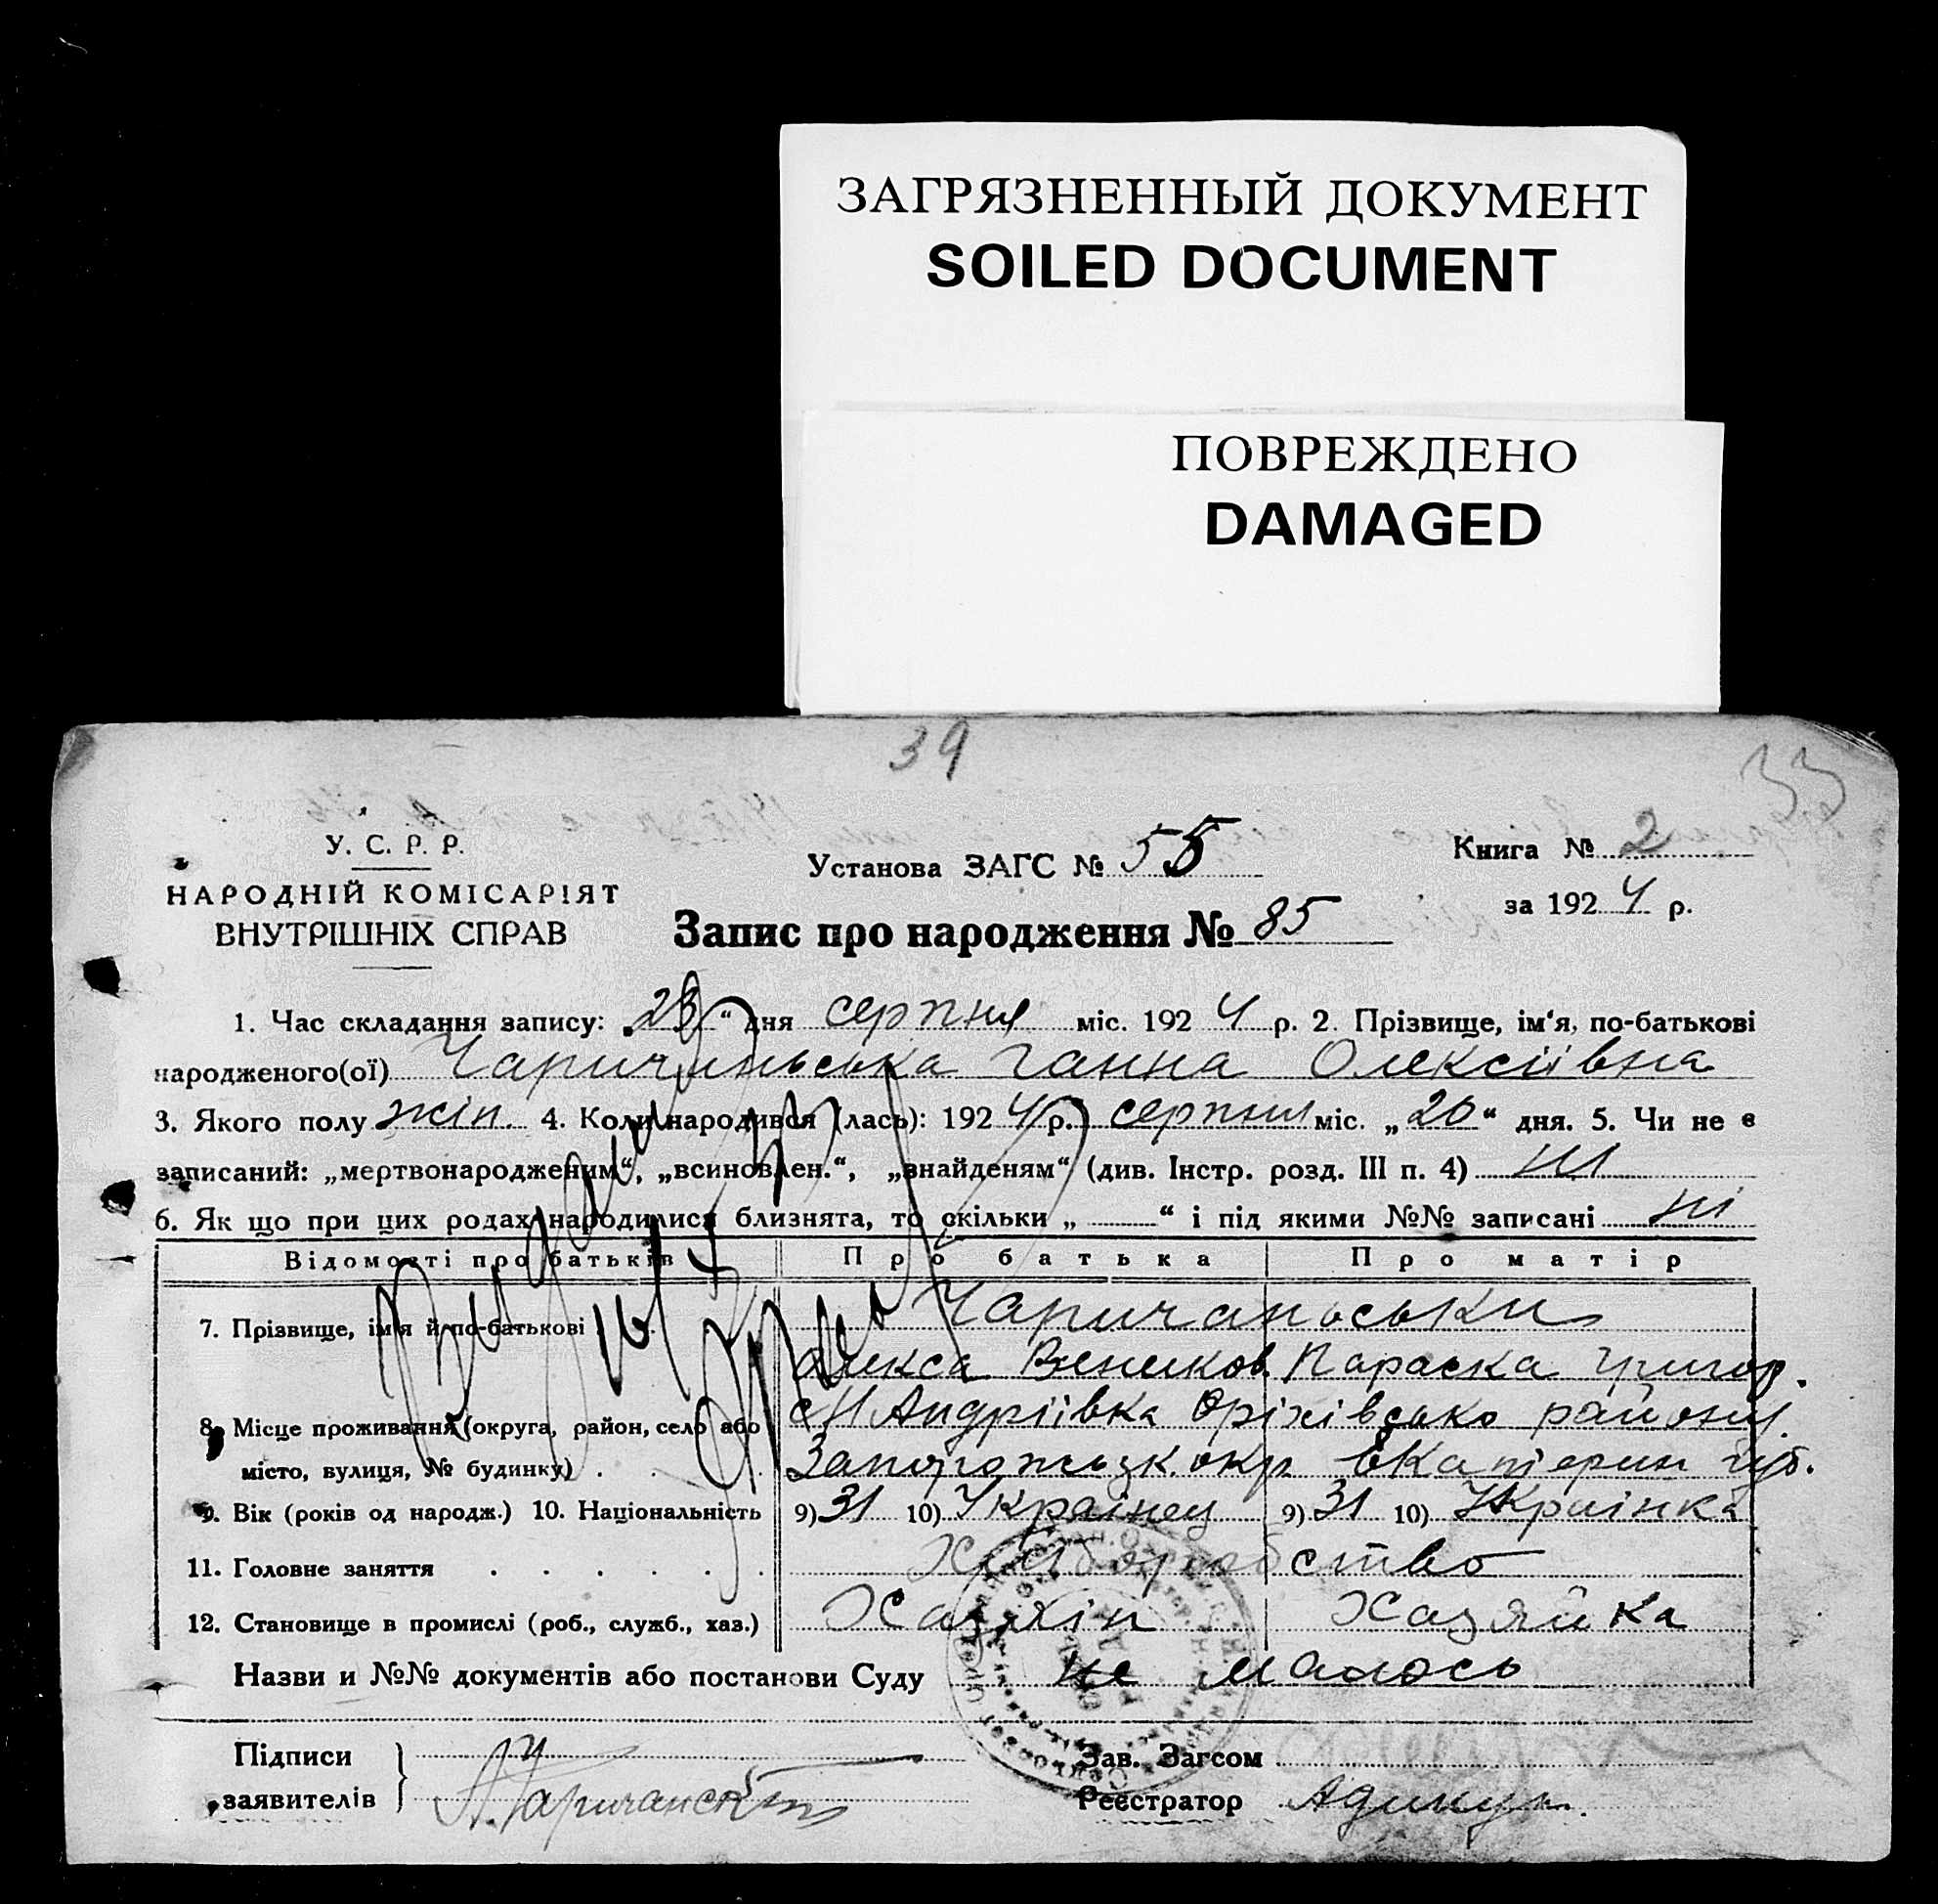 ЗАГРЯЗНЕННЫЙ ДОКУМЕНТ
SOILED DOCUMENT
ПОВРЕЖДЕНО
DAMAGED
39
33
У. С. Р. Р.
НАРОДНІЙ КОМІСАРІЯТ
ВНУТРІШНІХ СПРАВ
Установа ЗАГС № 55
Книга № 2
за 1924 р.
Запис про народження № 85
1. Час складання запису: „23“ дня серпня міс. 1924 р. 2. Прізвище, ім'я, по-батькові
народженого(ої) Чаричаньська Ганна Олексіївна
3. Якого полу жін. 4. Коли народився (лась): 1924 р. серпня міс. „20“ дня. 5. Чи не є
записаний: „мертвонародженим“, „всиновлен.“, „знайденям“ (див. Інстр. розд. III п. 4) ні
6. Як що при цих родах народилися близнята, то скільки „ “ і під якими №№ записані ні
Відомості про батьків Про батька Про матір
7. Прізвище, ім'я й по-батькові Чаричаньськи
Олекса Параска Григор.
8. Місце проживання (округа, район, село або с Н Андріївка Оріхівсько району
місто, вулиця, № будинку) Запоріжьск. окр Екатерин губ.
9. Вік (років од народж.) 10. Національність 9) 31 10) Українец 9) 31 10) Українка
11. Головне заняття Хліборобство
12. Становище в промислі (роб., служб., хаз.) Хазяін Хазяйка
Назви и №№ документів або постанови Суду не малось
Підписи
заявителів А. Чаричанский
Зав. Загсом
Реєстратор